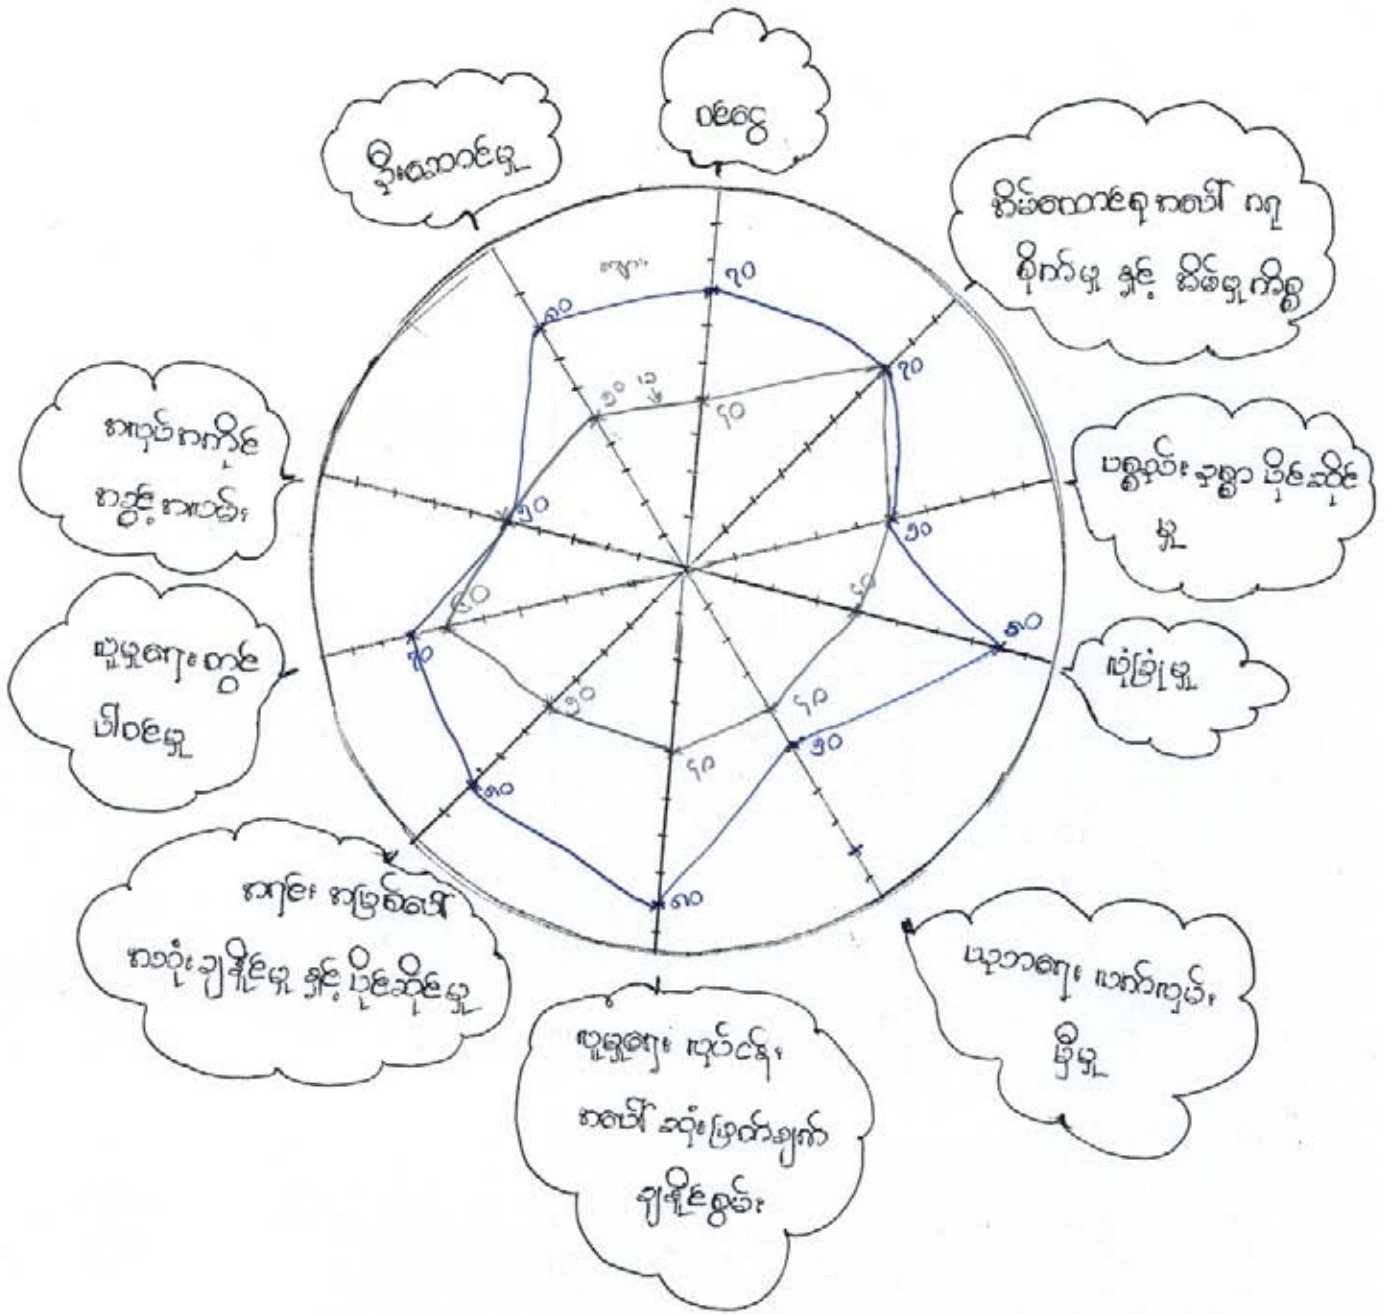 ဝင်ငွေ
အိမ်ထောင်စု အပေါ် ဂရု
စိုက်မှု နှင့် အိမ်မှုကိစ္စ
ပစ္စည်း ဥစ္စာ ပိုင်ဆိုင်
မှု
လုံခြုံမှု
ပညာရေး လက်လှမ်း
မှီမှု
လူမှုရေး လုပ်ငန်း
အပေါ် ဆုံးဖြတ်ချက်
ချနိုင်စွမ်း
အရင်း အမြစ်ပေါ်
အသုံးချနိုင်မှု နှင့် ပိုင်ဆိုင်မှု
လူမှုရေး တွင်
ပါဝင်မှု
အလုပ်အကိုင်
အခွင့်အလမ်း
ဦးဆောင်မှု
ကျား
မ
၇၀
၄၀
၇၀
၅၀
၈၀
၄၀
၅၀
၄၀
၈၀
၄၀
၈၀
၅၀
၇၀
၆၀
၅၀
၈၀
၅၀